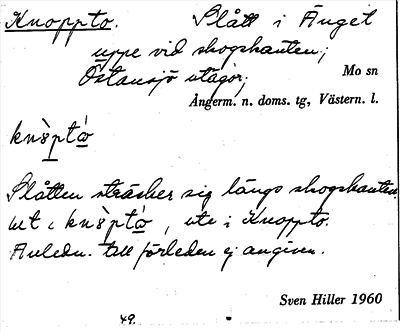 Knoppto. Slått i Änget
uppe vid skogskanten;
Östansjö utägor; Mo sn
Ångerm. n. doms. tg, Västern. l.
knòptó̤
Slåtten sträcker sig längs skogskanten.
ut i knòptó̤, ute i Knoppto.
Anledn. till förleden ej angiven.
Sven Hiller 1960
49.